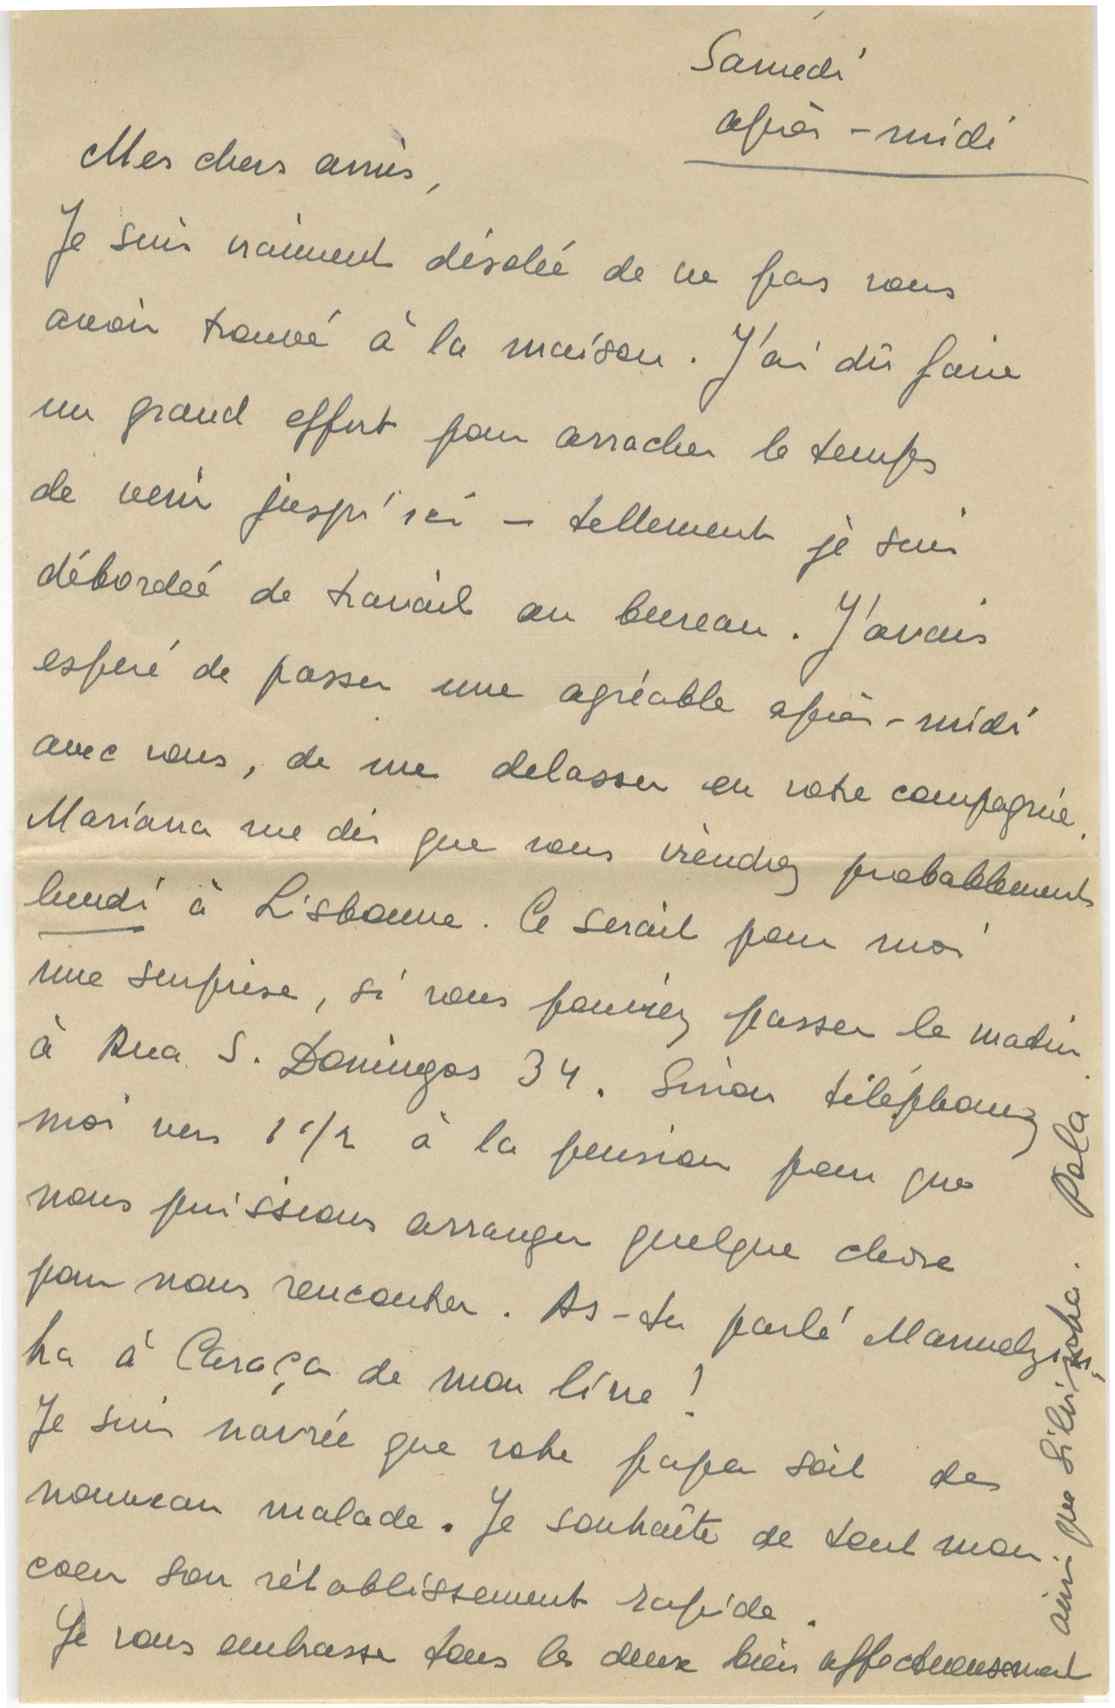 Samedi
après-midi
Mes chers amis,
Je suis vraiment désolée de ne pas vous
avoir trouvé à la maison. J'ai dû faire
un grand effort pour arracher le temps
de venir jusqu'ici – tellement je suis
débordée de travail au bureau. J'avais
esperé de passer une agréable après-midi
avec vous, de me delasser en votre compagnie.
Mariana me dis que vous viendrez probablement
lundi à Lisbonne. Ce serait pour moi
une surprise, si vous pouviez passer le matin
à Rua S. Domingos 34. Sinon téléphonez
moi vers 1 1/2 à la pension pour que
nous puissions arranger quelque chose
pour nous rencontrer. As-tu parlé Manuelzi-
ha à Caraça de mon livre!
Je suis navrée que votre papa soit de
nouveau malade. Je souhaite de tout mon
coeur son rétablissement rapide.
Je vous embrasse tous les deux bien affectueusement
ainsi que Silvinha. Pola